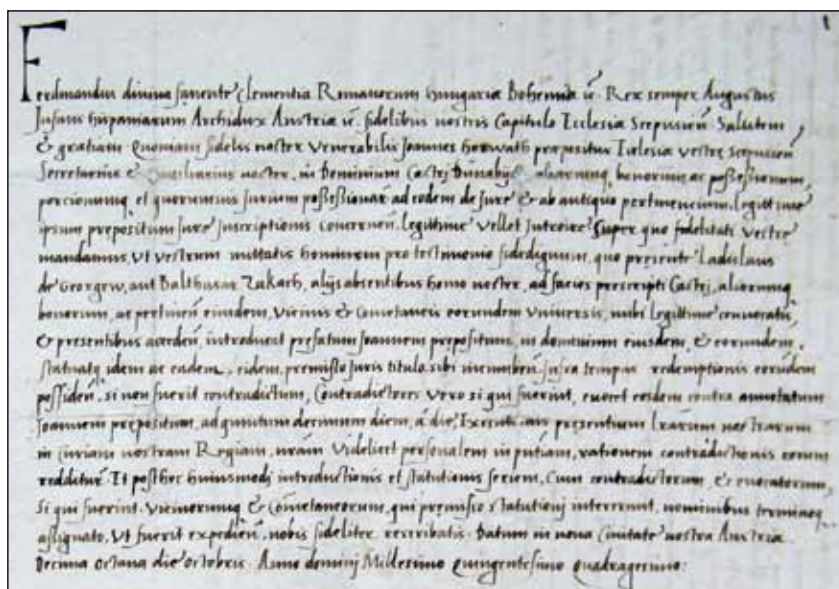 Ferdinandus divina favente clementia Romanorum Hungariæ Bohemiæ ec̄. Rex semper Augustus
Infans hispaniarum Archidux Austriæ ec̄. fidelibus nostris Capitulo Ecclesiæ Scepusień. Salutem
& gratiam Quoniam fidelis noster Venerabilis Joannes Horwath præpositus Ecclesiæ vestrę scepusień
Secretarius & Consiliarius noster, in Dominium Castrj Dunabÿcz, aliarumq̨ bonorum ac possessionum,
porcionumq̨ et quorumuis Jurium possessionariorum ad eodem de Jure & ab antiquo pertinencium, legittime
ipsum prępositum Jure Inscriptionis concerneń. legittime vellet Introire: Super quo fidelitati Vestre
mandamus, Vt Vestrum mittatis hominem pro testimonio fidedignum, quo pręsente Ladislaus
de Georgew, aut Balthasar Zakach, alijs absentibus homo noster, ad facies prescripti Castrj, aliorumq̨
bonorum, ac pertineń eiusdem, Vicinis & Cometaneis eorundem Vniuersis, inibi legittime conuocatis
& presentibus accedeń, introducat pręfatum Joannem prępositum, in dominium eiusdem, & eorundem,
statuatq̨ idem ac eadem, eidem, premisso Juris titulo, sibi incumbeń. infra tempus redemptionis eorūdem
possideń, si non fuerit contradictum, Contradictores Vero si qui fuerint, euocet eosdem contra annotatum
Joannem prępositum, ad quintum decimum diem, à die, Executionis presentium Lr̄arum nostrarum
in Curiam nostram Regiam, nr̄am Videlicet personalem in pn̄tiam, rationem contradictionis eorum
reddituros. Et posthec huiusmodi introductionis et statutionis seriem, Cum contradictorum, & euocatorum,
Si qui fuerint. Vicinorumq̨ & Cōmetaneorum, qui premisso statutionj intererunt. nominibus terminoq̨
assignato, Vt fuerit expedień, nobis fideliter rescribatis. Datum in noua Ciuitate nostra Austriæ
Decima octaua die octobris. Anno dominj Millesimo Quingentesimo Quadragesimo: